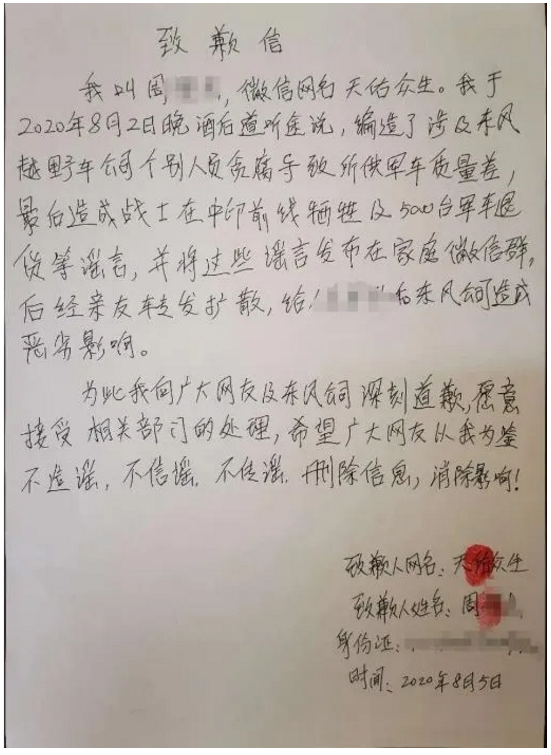 致歉信
我叫周，微信网名天佑众生。我于
2020年8月2日晚酒后道听途说，编造了涉及东风
越野车公司个别人员贪腐导致所供军车质量差，
最后造成战士在中印前线牺牲及5000台军车退
货等谣言，并将这些谣言发布在家庭微信群，
后经亲友转发扩散，给 和东风公司造成
恶劣影响。
为此我向广大网友及东风公司深刻道歉，愿意
接受相关部门的处理，希望广大网友从我为鉴
不造谣，不信谣，不传谣．删除信息，消除影响！
致歉人网名：天佑众生
致歉人姓名：周
身份证：
时间：2020年8月5日